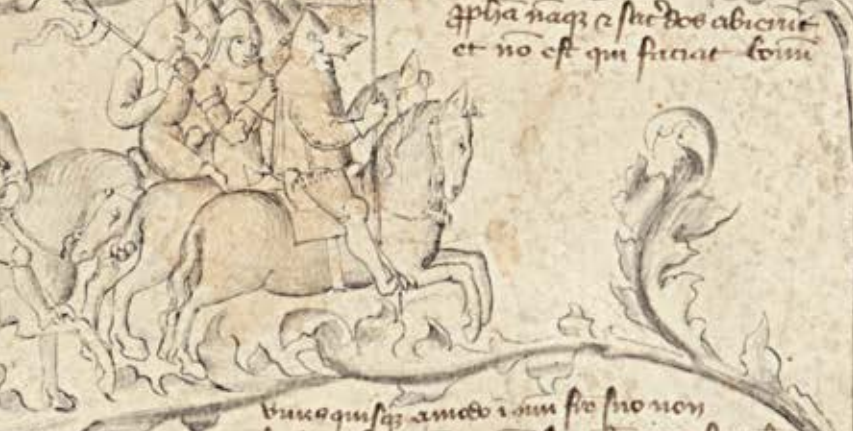 ꝓpħa nāqꝫ ⁊ sac̄dos abierūt
et nō est qui faciat bonū
vnusquisqꝫ amico suo non